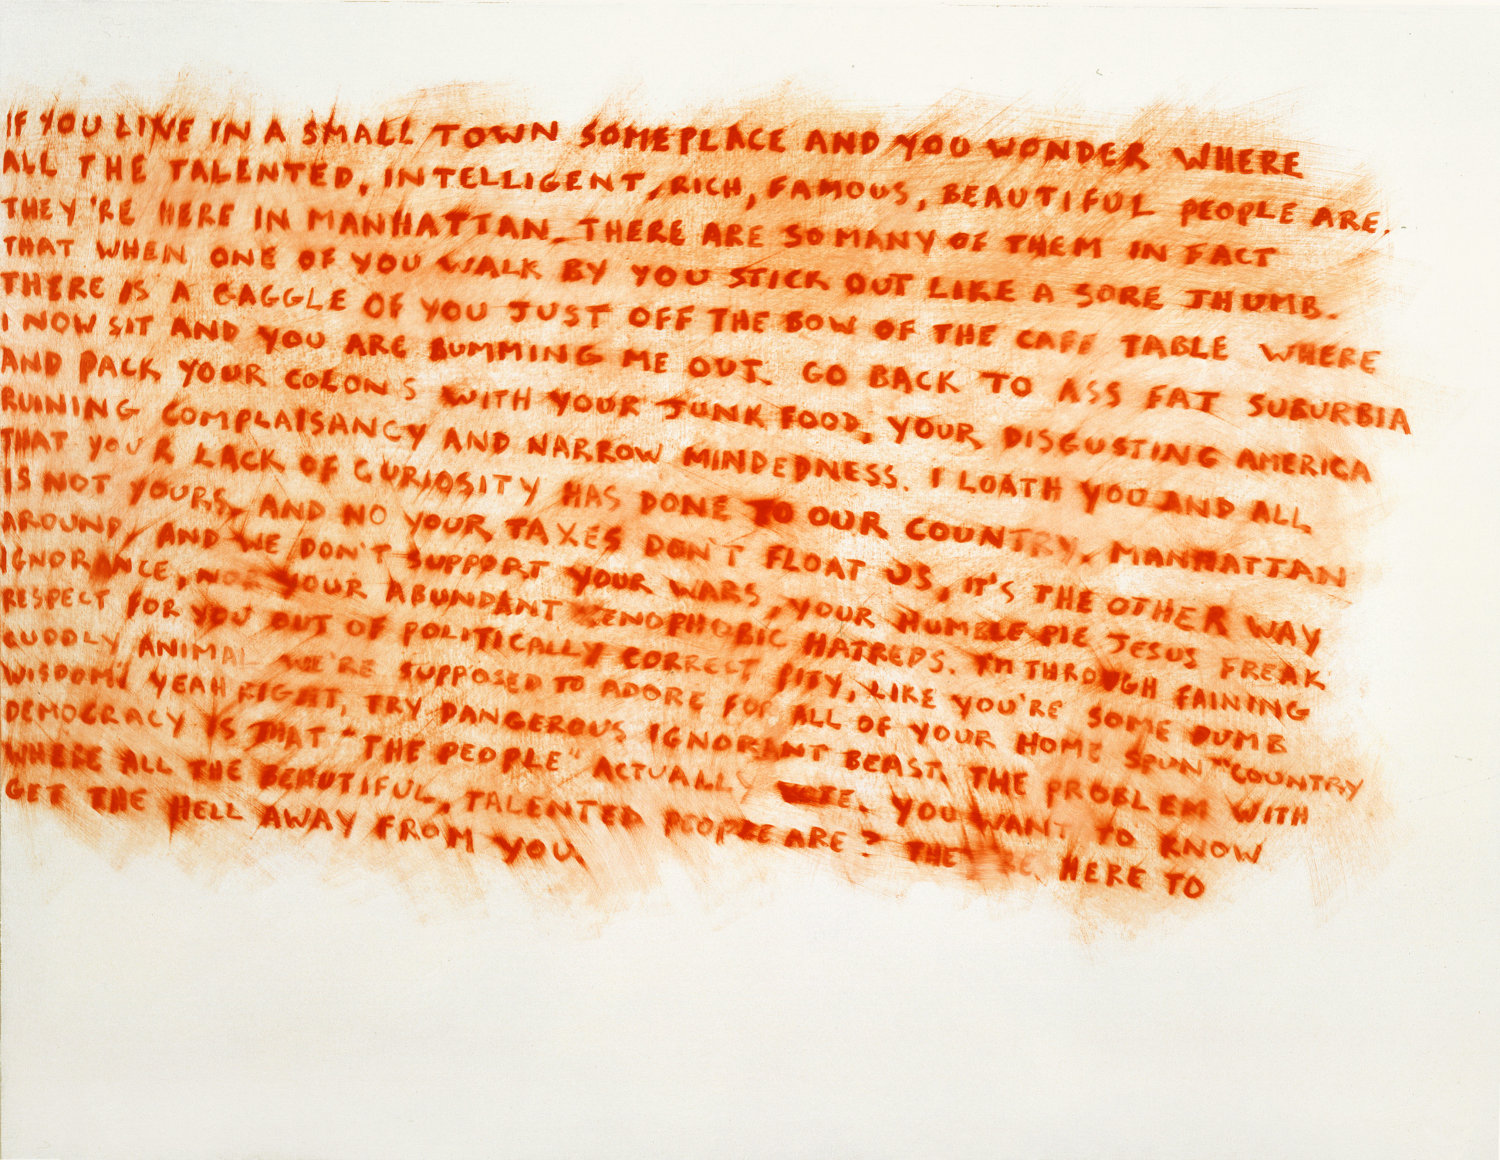 IF YOU LIVE IN A SMALL TOWN SOMEPLACE AND YOU WONDER WHERE
ALL THE TALENTED, INTELLIGENT, RICH, FAMOUS, BEAUTIFUL PEOPLE ARE.
THEY'RE HERE IN MANHATTAN. THERE ARE SO MANY OF THEM IN FACT
THAT WHEN ONE OF YOU WALK BY YOU STICK OUT LIKE A SORE THUMB.
THERE IS A GAGGLE OF YOU JUST OFF THE BOW OF THE CAFE TABLE WHERE
I NOW SIT AND YOU ARE BUMMING ME OUT. GO BACK TO ASS FAT SUBURBIA
AND PACK YOUR COLONS WITH YOUR JUNK FOOD, YOUR DISGUSTING AMERICA
RUINING COMPLAISANCY AND NARROW MINDEDNESS. I LOATH YOU AND ALL
THAT YOUR LACK OF CURIOSITY HAS DONE TO OUR COUNTRY. MANHATTAN
IS NOT YOURS, AND NO YOUR TAXES DON'T FLOAT US, IT'S THE OTHER WAY
AROUND, AND WE DON'T SUPPORT YOUR WARS, YOUR HUMBLE PIE JESUS FREAK
IGNORANCE, NOR YOUR ABUNDANT XENOPHOBIC HATREDS. I'M THROUGH FAINING
RESPECT FOR YOU OUT OF POLITICALLY CORRECT PITY, LIKE YOU'RE SOME DUMB
CUDDLY ANIMAL WE'RE SUPPOSED TO ADORE FOR ALL OF YOUR HOME SPUN "COUNTRY
WISDOM". YEAH RIGHT, TRY DANGEROUS IGNORANT BEAST. THE PROBLEM WITH
DEMOCRACY IS THAT "THE PEOPLE" ACTUALLY VOTE. YOU WANT TO KNOW
WHERE ALL THE BEAUTIFUL, TALENTED PEOPLE ARE? THEY'RE HERE TO
GET THE HELL AWAY FROM YOU.